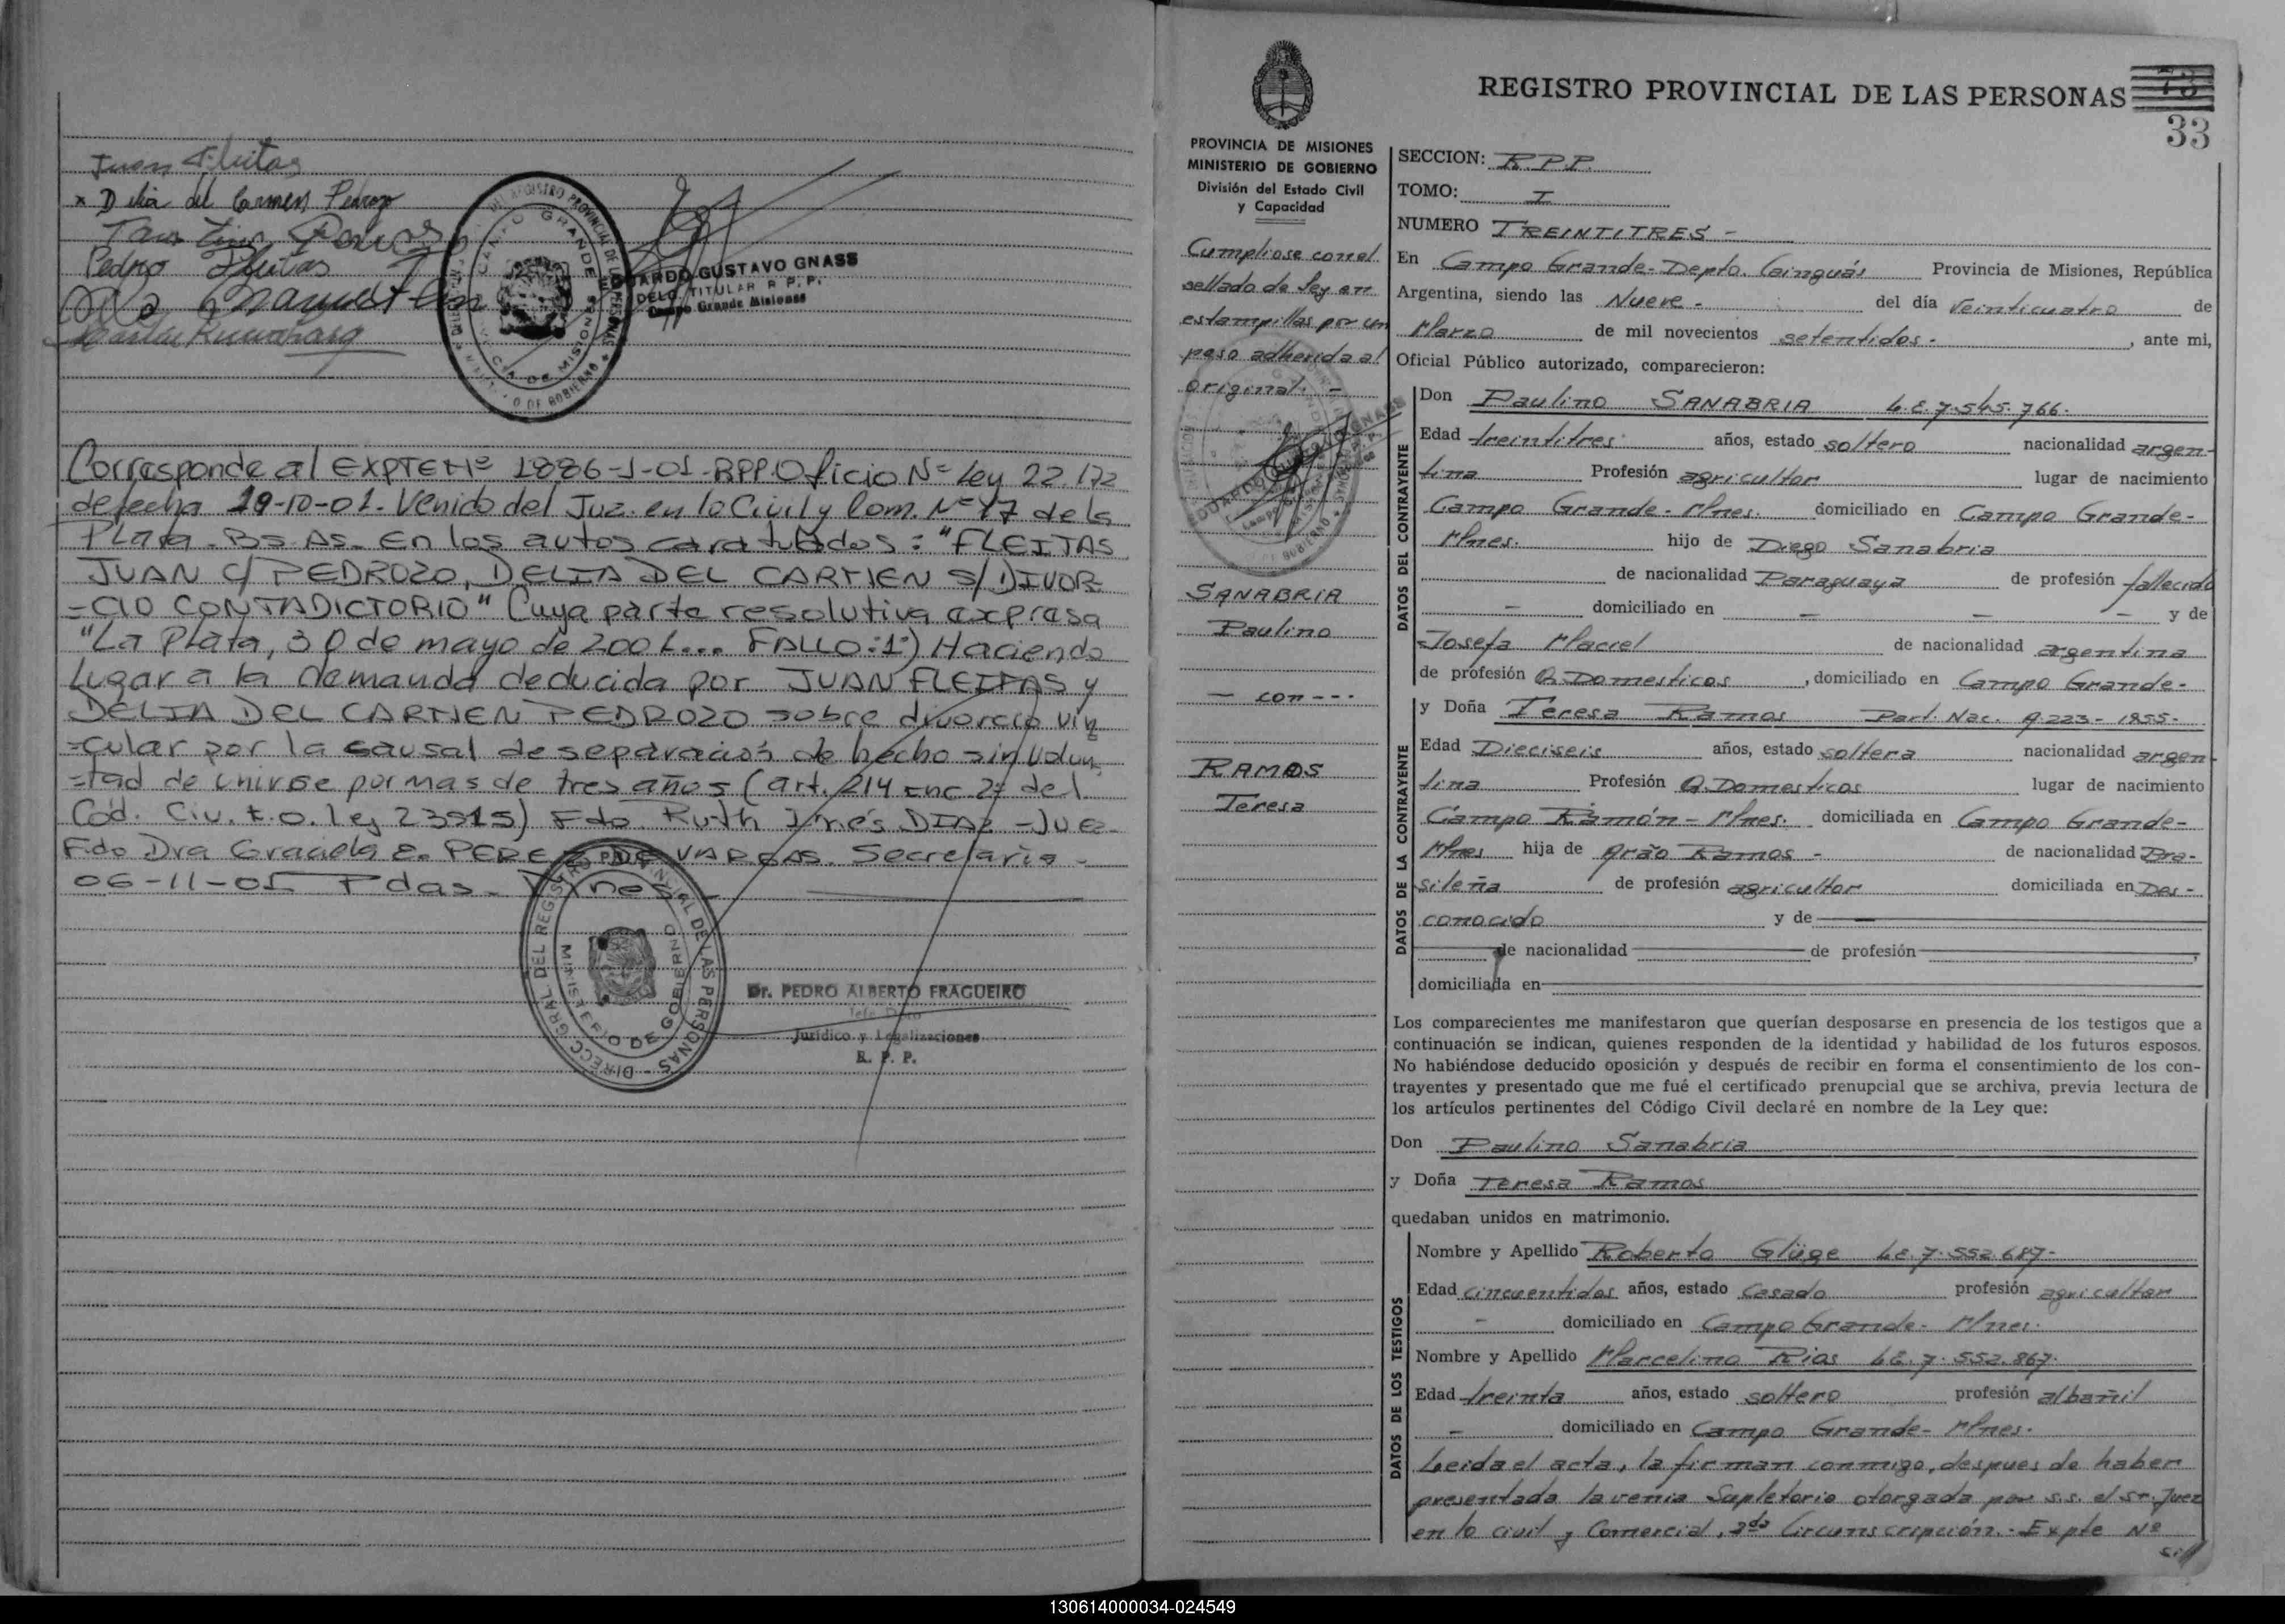 Juan Fleitas
x Delia del Carmen Pedrozo
Pedro Fleitas
EDUARDO GUSTAVO GNASS
DELG. TITULAR R. P. P.
Campo Grande Misiones
Corresponde al EXPTE Nº 1886-J-01-RPP. Oficio Nº Ley 22.172
de fecha 19-10-01. Venido del Juz. en lo Civil y Com. Nº 17 de la
Plata - Bs. As. En los autos caratulados: "FLEITAS
JUAN C/ PEDROZO, DELIA DEL CARMEN S/ DIVOR-
=CIO CONTADICTORIO" Cuya parte resolutiva expresa
"La Plata, 30 de mayo de 2001... FALLO: 1º) Haciendo
lugar a la demanda deducida por JUAN FLEITAS y
DELIA DEL CARMEN PEDROZO sobre divorcio vin
=cular por la causal de separación de hecho sin volun
=tad de unirse por mas de tres años (art. 214 inc 2º del
Cód. Civ. t.o. ley 23515) Fdo. Ruth Inés DIAZ - Juez-
Fdo Dra Graciela E. PEREZ DE VARGAS. Secretaria -
06-11-01 Pdas. Mnes
DIRECC. GRAL DEL REGISTRO PROVINCIAL DE LAS PERSONAS
MINISTERIO DE GOBIERNO
Dr. PEDRO ALBERTO FRAGUEIRO
Jefe Dpto
Jurídico y Legalizaciones
R. P. P.
REGISTRO PROVINCIAL DE LAS PERSONAS
73
33
PROVINCIA DE MISIONES
MINISTERIO DE GOBIERNO
División del Estado Civil
y Capacidad
Cumpliose con el
sellado de ley en
estampillas por un
peso adherida al
original. -
SANABRIA
Paulino
- con ---
RAMOS
Teresa
SECCION: R.P.P.
TOMO: I
NUMERO TREINTITRES -
En Campo Grande - Depto. Cainguás Provincia de Misiones, República
Argentina, siendo las Nueve - del día veinticuatro de
Marzo de mil novecientos setentidos - , ante mi,
Oficial Público autorizado, comparecieron:
DATOS DEL CONTRAYENTE
Don Paulino SANABRIA L.E. 7.545.766.
Edad treintitres años, estado soltero nacionalidad argen-
tina Profesión agricultor lugar de nacimiento
Campo Grande - Mnes. domiciliado en Campo Grande -
Mnes. hijo de Diego Sanabria
de nacionalidad Paraguaya de profesión fallecido
- domiciliado en - - - y de
Josefa Maciel de nacionalidad argentina
de profesión Q. Domesticos , domiciliado en Campo Grande -
DATOS DE LA CONTRAYENTE
y Doña Teresa Ramos Part. Nac. A. 223 - 1955 -
Edad Dieciseis años, estado soltera nacionalidad argen-
tina Profesión Q. Domesticos lugar de nacimiento
Campo Ramón - Mnes. domiciliada en Campo Grande -
Mnes hija de Arão Ramos - de nacionalidad Bra-
sileña de profesión agricultor domiciliada en Des-
conocido y de
de nacionalidad de profesión ,
domiciliada en
Los comparecientes me manifestaron que querían desposarse en presencia de los testigos que a
continuación se indican, quienes responden de la identidad y habilidad de los futuros esposos.
No habiéndose deducido oposición y después de recibir en forma el consentimiento de los con-
trayentes y presentado que me fué el certificado prenupcial que se archiva, previa lectura de
los artículos pertinentes del Código Civil declaré en nombre de la Ley que:
Don Paulino Sanabria
y Doña Teresa Ramos
quedaban unidos en matrimonio.
DATOS DE LOS TESTIGOS
Nombre y Apellido Roberto Glüge L.E. 7.552.687 -
Edad cincuentidos años, estado Casado profesión agricultor
- domiciliado en Campo Grande - Mnes.
Nombre y Apellido Marcelino Rios L.E. 7.552.867.
Edad treinta años, estado soltero profesión albañil
- domiciliado en Campo Grande - Mnes.
Leida el acta, la firman conmigo, despues de haber
presentada la venia Supletorio otorgada por s.s. el Sr. Juez
en lo civil y Comercial, 2da Circunscripción. - Expte Nº
130614000034-024549